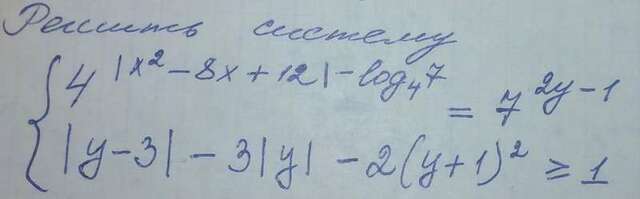 Решить систему
4^{|x² - 8x + 12| - log₄7} = 7^{2y - 1}
|y - 3| - 3|y| - 2(y + 1)² ≥ 1